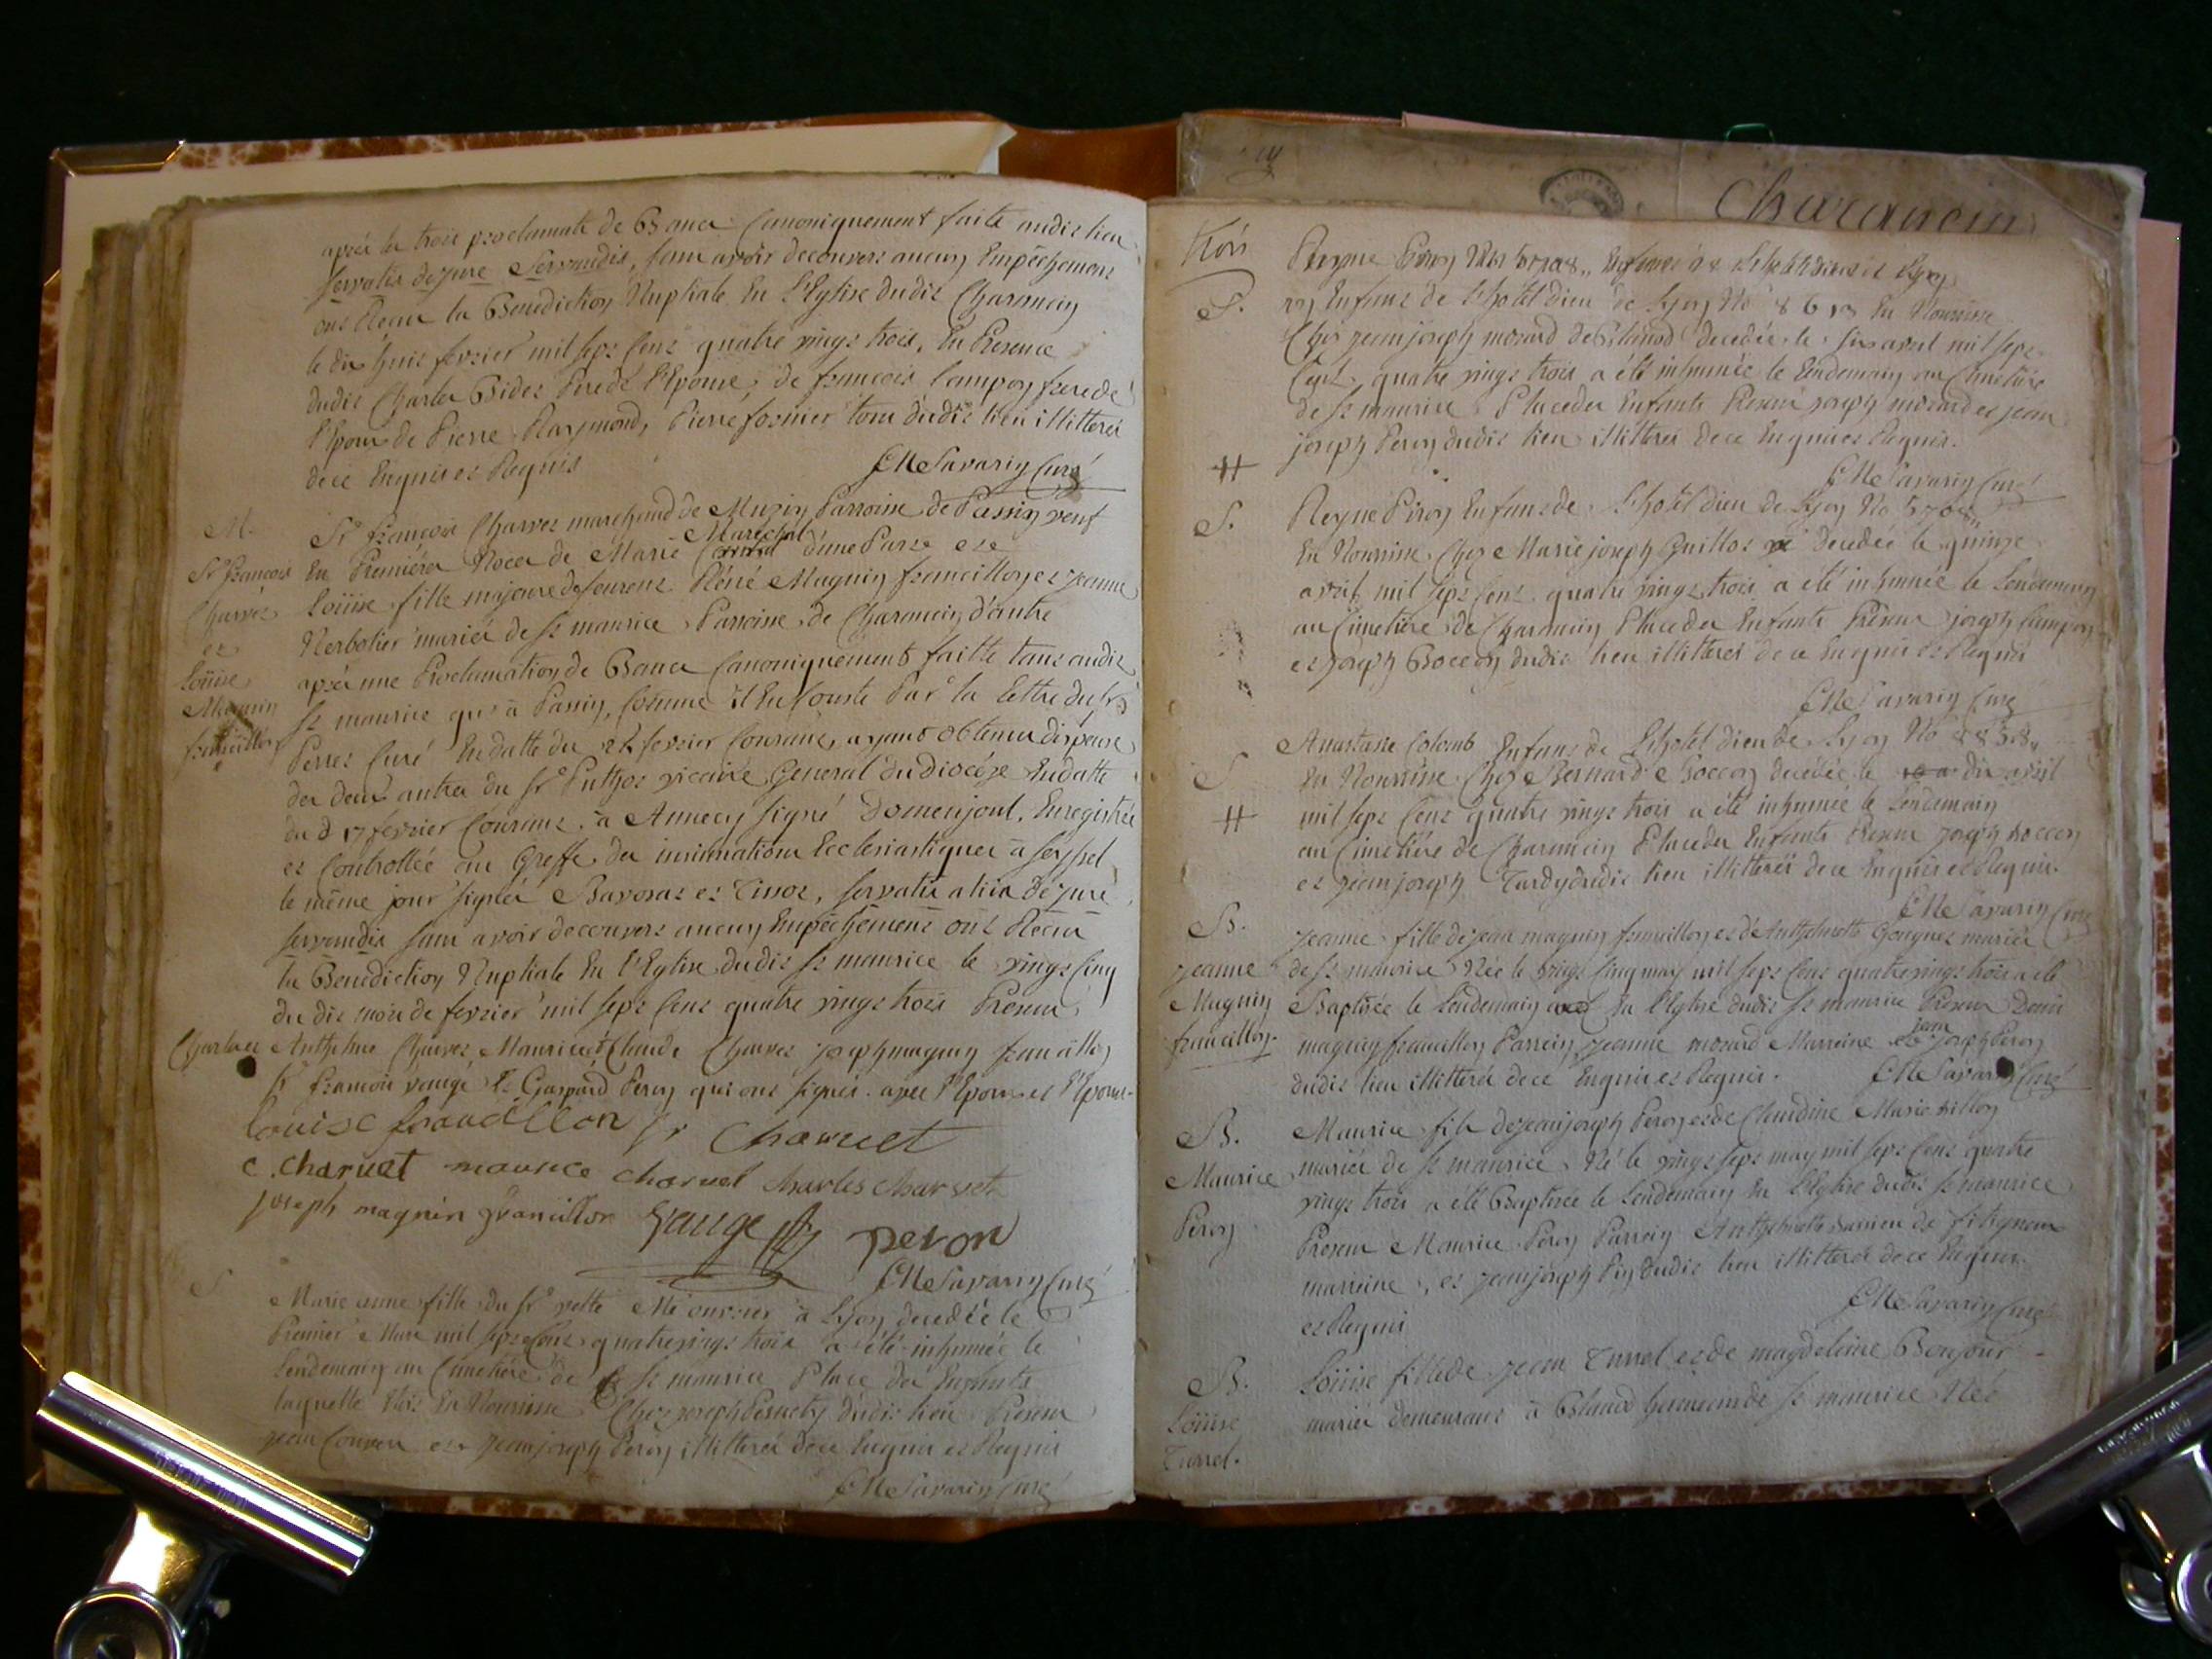 après la trois proclamate de Bancs Canoniquement faite audit lieu
servatis de jure Servandis, sans avoir decouvert aucun Empêchement
ont Recu la Benediction Nuptiale En l'Eglise dudit Charancin
le dix huit fevrier mil sept Cent quatre vingt trois, En Presence
dudit Charles Bidet Pere de l'Epouse, de francois Campon frere de
l'Epoux de Pierre Raymond, Pierre fornier tous dudit lieu illitterés
de ce Enquis et Requis
CM Savarin Curé
M. Sr francois Charvet marchand de Muzin Parroisse de Passin veuf
En Premiéres Noces de Marie Maréchal d'une Part et
Sr francois Charvet et Loüise Magnin francillon
Loüise fille majeure de feu René Magnin francillon et jeanne
Nerbotier mariés de St maurice Parroisse de Charancin d'autre
après une Proclamation de Bancs Canoniquement faitte tant audit
St maurice qu'à Passin, Comme il En Conste Par la lettre du Sr
Perret Curé En datte du fevrier Courant, ayant obtenu dispense
des deux autres du Sr Puthod vicaire General du diocéze En datte
du d 17 fevrier Courant, à Annecy signé Domenjout, Enregistrée
et Controllée au Greffe des insinuations Ecclesiastiques à Seyssel
le même jour signés Bavoraz et Tissot, servatis aliis de jure
servandis sans avoir decouvert aucun Empêchement ont Recu
la Benediction Nuptiale En l'Eglise dudit St maurice le vingt Cinq
du dit mois de fevrier mil sept Cent quatre vingt trois Presens
Charles et Anthelme Charvet, Maurice et Claude Charvet joseph magnin francillon
Sr francois vaugé Sr Gaspard Peron qui ont signés avec l'Epoux et l'Epouse
Louise francillon fr Charvet
C. Charvet maurice Charvet Charles Charvet
joseph magnin francillon Peron
CM Savarin Curé
S. Marie anne fille du Sr ouvrier à Lyon decedée le
Premier Mars mil sept Cent quatre vingt trois a été inhumée le
Lendemain au Cimetiére de St maurice Place des Enfants
laquelle étoit En Nourrisse Chez joseph dudit lieu Presens
jean et jean joseph Peron illitterés de ce Enquis et Requis
CM Savarin Curé
Charancin
trois
S. Enfant de l'hotel dieu de Lyon No 8613 En Nourrisse
Chez jean joseph morard de decedée le six avril mil sept
Cent quatre vingt trois a été inhumée le lendemain au Cimetiére
de St maurice Place des Enfants Presens joseph morard et jean
joseph Peron dudit lieu illitterés de ce Enquis et Requis.
#
CM Savarin Curé
S. Reyne Piron Enfant de l'hotel dieu de Lyon No
En Nourrisse Chez Marie joseph Guillot decedée le quinze
avril mil sept Cent quatre vingt trois a été inhumée le Lendemain
au Cimetiére de Charancin Place des Enfants Presens joseph Campon
et joseph Boccon dudit lieu illitterés de ce Enquis et Requis
CM Savarin Curé
Anastasie Colomb Enfant de l'hotel dieu de Lyon No
S En Nourrisse Chez Bernard Boccon decedée le dix avril
# mil sept Cent quatre vingt trois a été inhumée le Lendemain
au Cimetiére de Charancin Place des Enfants Presens joseph boccon
et jean joseph Tardy dudit lieu illitterés de ce Enquis et Requis.
CM Savarin Curé
B. jeanne fille de jean magnin francillon et d'Anthelmette Gonguet mariés
jeanne Magnin francillon.
de St maurice Née le vingt Cinq may mil sept Cent quatre vingt trois a été
Baptisée le Lendemain En l'Eglise dudit St maurice Presens Denis
magnin francillon Parrein, jeanne morard Marreine et jean joseph Peron
dudit lieu illitterés de ce Enquis et Requis.
CM Savarin Curé
B. Maurice fils de jean joseph Peron et de Claudine Marie billon
Maurice Peron
mariés de St maurice Né le vingt sept may mil sept Cent quatre
vingt trois a été Baptisée le Lendemain En l'Eglise dudit St maurice
Presens Maurice Peron Parrein Anthelmette de fitignieu
marreine, et jean joseph dudit lieu illitterés de ce Enquis
et Requis
CM Savarin Curé
B. Loüise fille de jean Turrel et de magdeleine Bonjour
Loüise Turrel.
mariés demeurant à hameau de St maurice Née